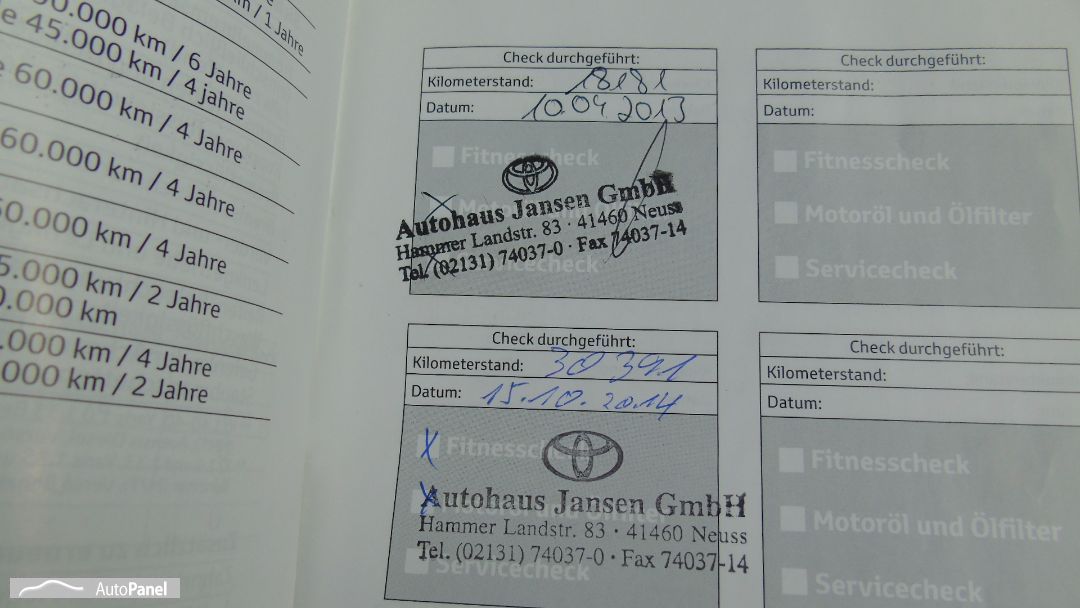 0.000 km / 6 Jahre
45.000 km / 4 jahre
60.000 km / 4 Jahre
60.000 km / 4 Jahre
0.000 km / 4 Jahre
5.000 km / 2 Jahre
0.000 km
.000 km / 4 Jahre
000 km / 2 Jahre
/ 1 Jahre
Check durchgeführt:
Kilometerstand: 18181
Datum: 10.04 2013
Fitnesscheck
Autohaus Jansen GmbH
Hammer Landstr. 83 · 41460 Neuss
Tel. (02131) 74037-0 · Fax 74037-14
Servicecheck
Check durchgeführt:
Kilometerstand:
Datum:
Fitnesscheck
Motoröl und Ölfilter
Servicecheck
Check durchgeführt:
Kilometerstand: 30 391
Datum: 15.10.2014
Fitnesscheck
Autohaus Jansen GmbH
Hammer Landstr. 83 · 41460 Neuss
Tel. (02131) 74037-0 · Fax 74037-14
Servicecheck
Check durchgeführt:
Kilometerstand:
Datum:
Fitnesscheck
Motoröl und Ölfilter
Servicecheck
AutoPanel